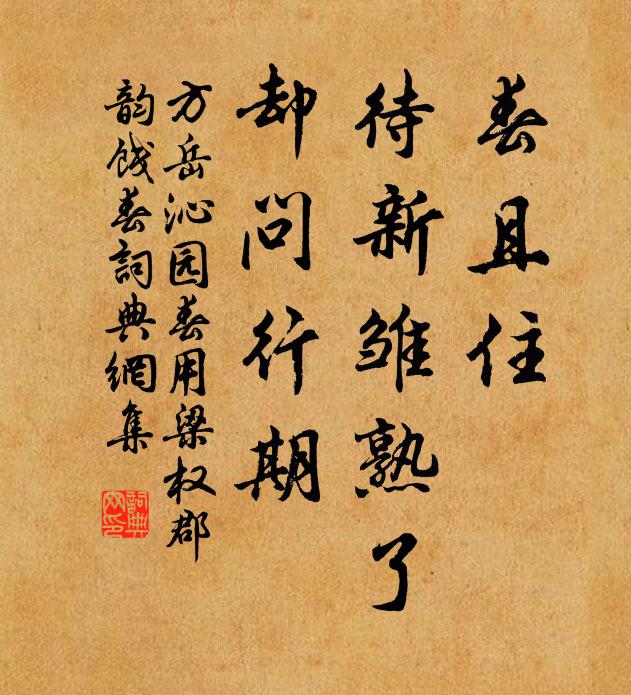 春且住
待新雏熟了
却问行期
方岳沁园春用梁权郡
韵饯春詞典網集
詞典網印